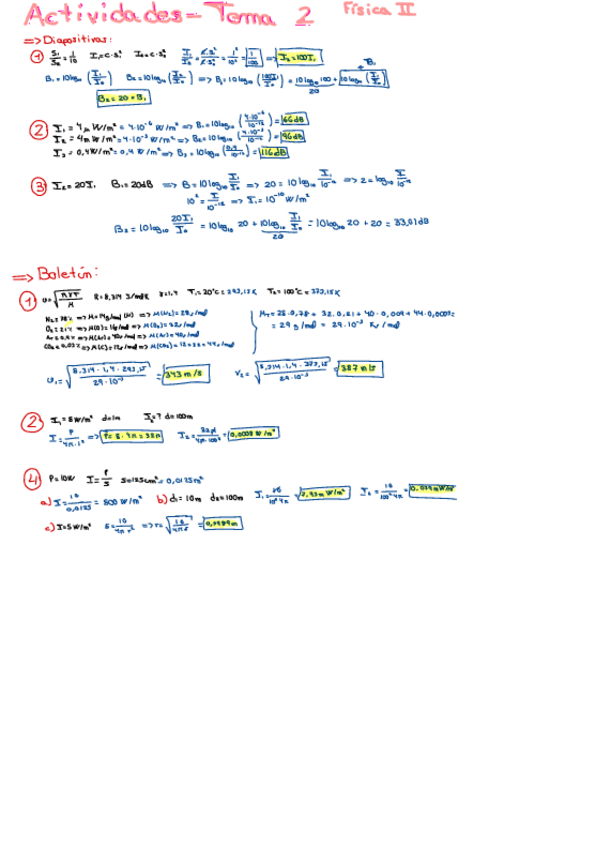 Actividades - Tema 2 Física II
=> Diapositivas:
① S₁/S₂ = 1/10 I₁=C·S₁² I₂=C·S₂² I₁/I₂ = C·S₁²/C·S₂² = 1²/10² = 1/100 => I₂=100I₁
B₁=10log₁₀(I₁/I₀) B₂=10log₁₀(I₂/I₀) => B₂=10log₁₀(100I₁/I₀) = 10log₁₀100 + 10log₁₀(I₁/I₀) B₁
20
B₂ = 20 + B₁
② I₁ = 4μW/m² = 4·10⁻⁶ W/m² => B₁=10log₁₀(4·10⁻⁶/10⁻¹²) = 66dB
I₂ = 4mW/m² = 4·10⁻³ W/m² => B₂=10log₁₀(4·10⁻³/10⁻¹²) = 96dB
I₃ = 0,4W/m² = 0,4 W/m² => B₃=10log₁₀(0,4/10⁻¹²) = 116dB
③ I₂=20I₁ B₁=20dB => B=10log₁₀ I₁/I₀ => 20=10log₁₀ I₁/10⁻¹² => 2=log₁₀ I₁/10⁻¹²
10²= I/10⁻¹² => I₁=10⁻¹⁰ W/m²
B₂=10log₁₀ 20I₁/I₀ = 10log₁₀ 20+10log₁₀ I₁/I₀ = 10log₁₀ 20 + 20 = 33,01dB
20
=> Boletín:
① v=√(γRT/M) R=8,314 J/molK γ=1,4 T₁=20°C=293,15K T₂=100°C=373,15K
N₂=78% => M=14g/mol (N) => M(N₂)=28g/mol
O₂=21% => M(O)=16g/mol => M(O₂)=32g/mol
Ar=0,9% => M(Ar)=40g/mol => M(Ar)=40g/mol
CO₂=0,03% => M(C)=12g/mol => M(CO₂)=12+32=44g/mol
M_T=28·0,78 + 32·0,21 + 40·0,009 + 44·0,0003=
= 29 g/mol = 29·10⁻³ Kg/mol
v₁=√(8,314·1,4·293,15/29·10⁻³) = 343 m/s V₂=√(8,314·1,4·373,15/29·10⁻³) = 387 m/s
② I₁=8W/m² d=1m I₂=? d=100m
I=P/4π·r² => P=8·4π=32π I₂=32π/4π·100²=0,0008 W/m²
④ P=10W I=P/S S=125cm²=0,0125m²
a) I=10/0,0125 = 800 W/m² b) d₁=10m d₂=100m I₁=10/10²4π = 7,95m W/m² I₂=10/100²4π = 0,079mW/m²
c) I=5W/m² 5=10/4πr² => r=√(10/4π5) = 0,3989m